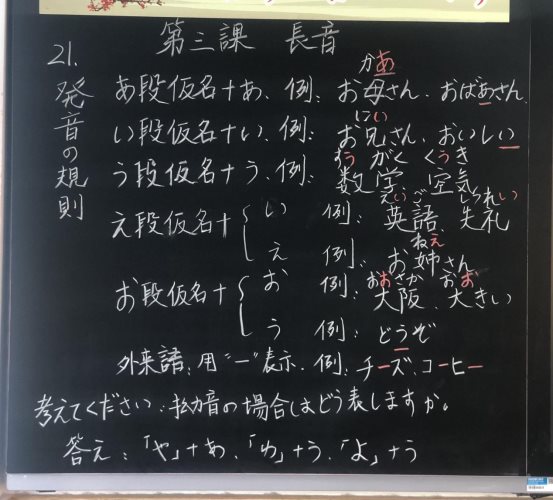 第三課 長音
21. 発音の規則
かあ
あ段仮名+あ、例：お母さん、おばあさん
にい
い段仮名+い、例：お兄さん、おいしい
すう がく くうき
う段仮名+う、例：数学、空気
えいご しつれい
え段仮名+{い 例：英語、失礼
ねえ
え 例：お姉さん
おおさか おお
お段仮名+{お 例：大阪、大きい
う 例：どうぞ
外来語：用"ー"表示、例：チーズ、コーヒー
考えてください：拗音の場合はどう表しますか。
答え：「や」+あ、「ゆ」+う、「よ」+う